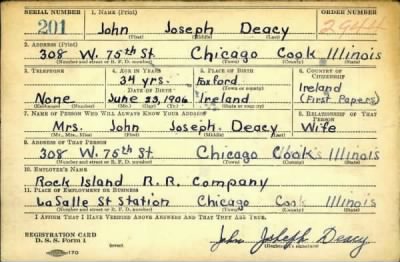 SERIAL NUMBER 1. NAME (Print) ORDER NUMBER
201 John Joseph Deacy 2944
2. ADDRESS (Print)
308 W. 75th St. Chicago Cook Illinois
(Number and street or R. F. D. number) (Town) (County) (State)
3. TELEPHONE 4. AGE IN YEARS 5. PLACE OF BIRTH 6. COUNTRY OF CITIZENSHIP
34 yrs. Foxford
DATE OF BIRTH (Town or county) Ireland
None June 23, 1906 Ireland (First Papers)
(Exchange) (Number) (Mo.) (Day) (Yr.) (State or country)
7. NAME OF PERSON WHO WILL ALWAYS KNOW YOUR ADDRESS 8. RELATIONSHIP OF THAT PERSON
Mrs. John Joseph. Deacy Wife
(Mr., Mrs., Miss) (First) (Middle) (Last)
9. ADDRESS OF THAT PERSON
308 W. 75th St Chicago Cook Illinois
(Number and street or R. F. D. number) (Town) (County) (State)
10. EMPLOYER'S NAME
Rock Island R. R. Company
11. PLACE OF EMPLOYMENT OR BUSINESS
LaSalle St Station Chicago Cook Illinois
(Number and street or R. F. D. number) (Town) (County) (State)
I AFFIRM THAT I HAVE VERIFIED ABOVE ANSWERS AND THAT THEY ARE TRUE.
REGISTRATION CARD
D. S. S. Form 1
John Joseph Deacy